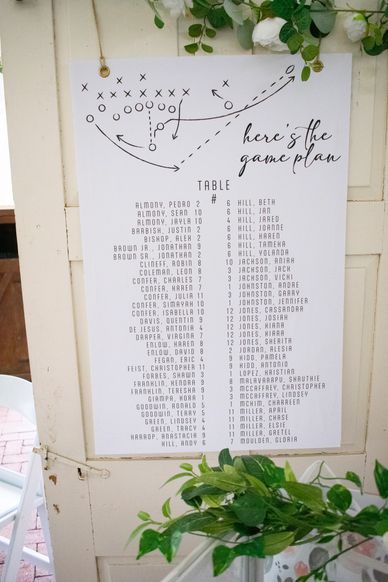 here's the
game plan
TABLE
#
ALMONY, PEDRO 2
ALMONY, SEAN 10
ALMONY, JAYLA 10
BARBISH, JUSTIN 2
BISHOP, ALEX 2
BROWN JR., JONATHAN 9
BROWN SR., JONATHAN 2
CLINEFF, ROBIN 8
COLEMAN, LEON 8
CONFER, CHARLES 7
CONFER, KAREN 7
CONFER, JULIA 11
CONFER, SIMAYAH 10
CONFER, ISABELLA 10
DAVIS, QUENTIN 9
DE JESUS, ANTONIA 4
DRAPER, VIRGINIA 7
ENLOW, KAREN 8
ENLOW, DAVID 8
FEGAN, ERIC 4
FEIST, CHRISTOPHER 11
FORBES, SHAWN 3
FRANKLIN, KENDRA 9
FRANKLIN, TERESHA 9
GIAMPA, KORA 1
GOODWIN, RONALD 5
GOODWIN, TERRY 5
GREEN, LINDSEY 4
GREEN, TRACY 4
HARROP, ANASTACIA 9
HILL, ANDY 6
6 HILL, BETH
6 HILL, JAN
4 HILL, JARED
6 HILL, JOANNE
6 HILL, KAREN
6 HILL, TAMEKA
6 HILL, YOLANDA
10 JACKSON, ANIAH
3 JACKSON, JACK
3 JACKSON, VICKI
1 JOHNSTON, ANDRE
3 JOHNSTON, GARRY
1 JOHNSTON, JENNIFER
12 JONES, CASSANDRA
12 JONES, JOSIAH
12 JONES, KIANA
12 JONES, KIARA
12 JONES, SHERITA
2 JORDAN, ALESIA
9 KIDD, PAMELA
9 KIDD, ANTONIO
1 LOPEZ, KRISTAN
8 MALAVARAPU, SHRUTHIE
3 MCCAFFREY, CHRISTOPHER
3 MCCAFFREY, LINDSEY
1 MCKIM, CHARREEN
11 MILLER, APRIL
11 MILLER, CHASE
11 MILLER, ELSIE
11 MILLER, GRETEL
7 MOULDEN, GLORIA